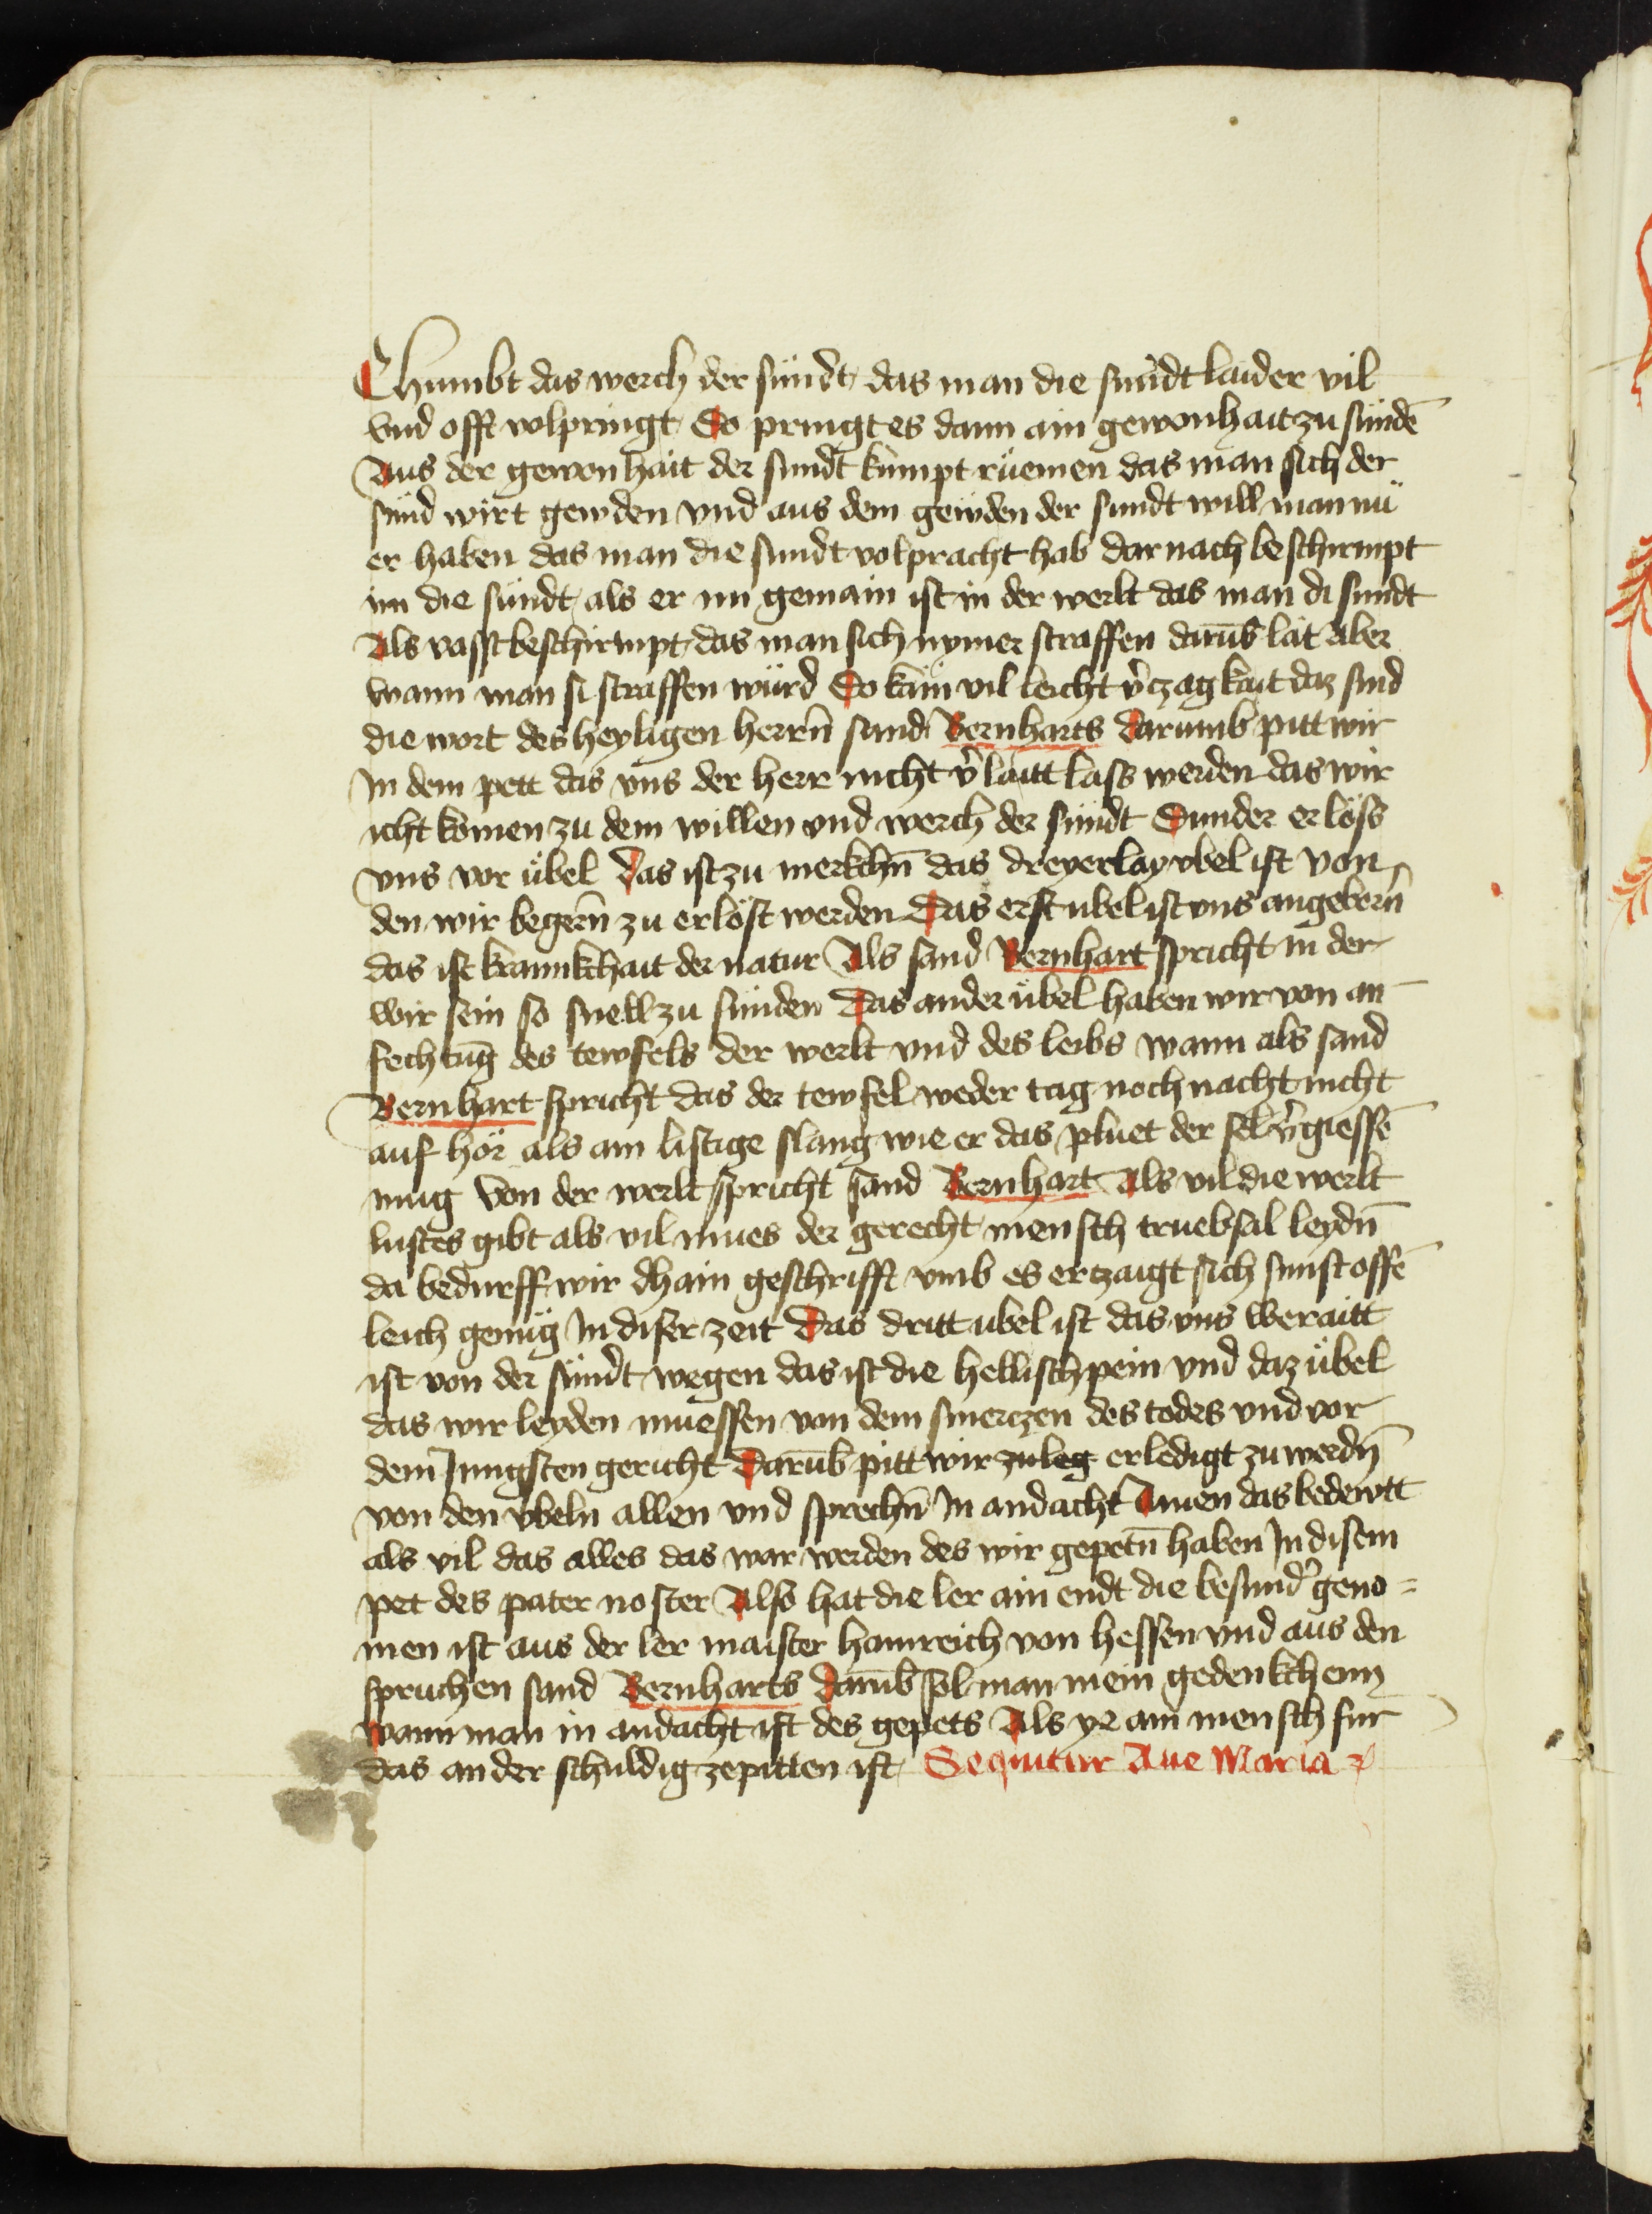 Chumbt das werch der sündt das man die sündt laider vil
vnd offt volpringt So pringt es dann ain gewonhait zu sündē
Aus der gewonhait der sundt kümpt rüemen das man sich der
sünd wirt gewden vnd aus dem gewden der sundt will man nü
er haben das man die sundt volpracht hab dar nach beschirmpt
im die sündt als er nu gemain ist in der werlt das man di sundt
Als vasst beschirmpt das man sich nymer straffen darūb lät Aber
wann man si straffen würd So käm vil leicht v̉czagkait daz sind
die wort des heyligen herrn̄ sand Bernharts Darumb pitt wir
In dem pett das vns der herr nicht v̉laitt lass werden das wir
icht kömen zu dem willen vnd werch der sündt Sunder erlöss
vns vor übel Das ist zu merkchn̄ das dreyerlay vbel ist von
den wir begern̄ zu erlöst werden Das erst ubel ist vns angeborn̄
das ist krannkchait der natur Als sand Bernhart spricht in der
wir sein so snell zu sünden Das ander übel haben wir von an
fechtūg des tewfels der werlt vnd des leibs wann als sand
Bernhart spricht das der tewfel weder tag noch nacht nicht
auf hör als ain listige slang wie er das pluet der sel v̉giessē
mug Von der werlt spricht sand Bernhart Als vil die werlt
lustes gibt als vil mues der gerecht mensch truebsal leydn̄
da bedurff wir chain geschrifft vmb es erczaigt sich sunst offē
leich genüg In diser zeit Das dritt ubel ist das vns beraitt
ist von der sündt wegen das ist die hellisch pein vnd daz übel
das wir leyden muessen von dem smerczen des todes vnd vor
dem Jungsten gericht Darūb pitt wir zuleg erledigt zu werdn̄
von den vbeln allen vnd sprechn̄ In andacht Amen das bedewtt
als vil das alles das war werden des wir gepetn̄ haben In disem
pet des pater noster Also hat die ler ain endt die besund̉ geno=
men ist aus der ler maister hainreich von hessen vnd aus den
spruchen sand Bernharts Darūb sol man mein gedenkchenn
wann man in andacht ist des gepets Als ye ain mensch fur
das ander schuldig ze pitten ist Sequitur Aue Maria